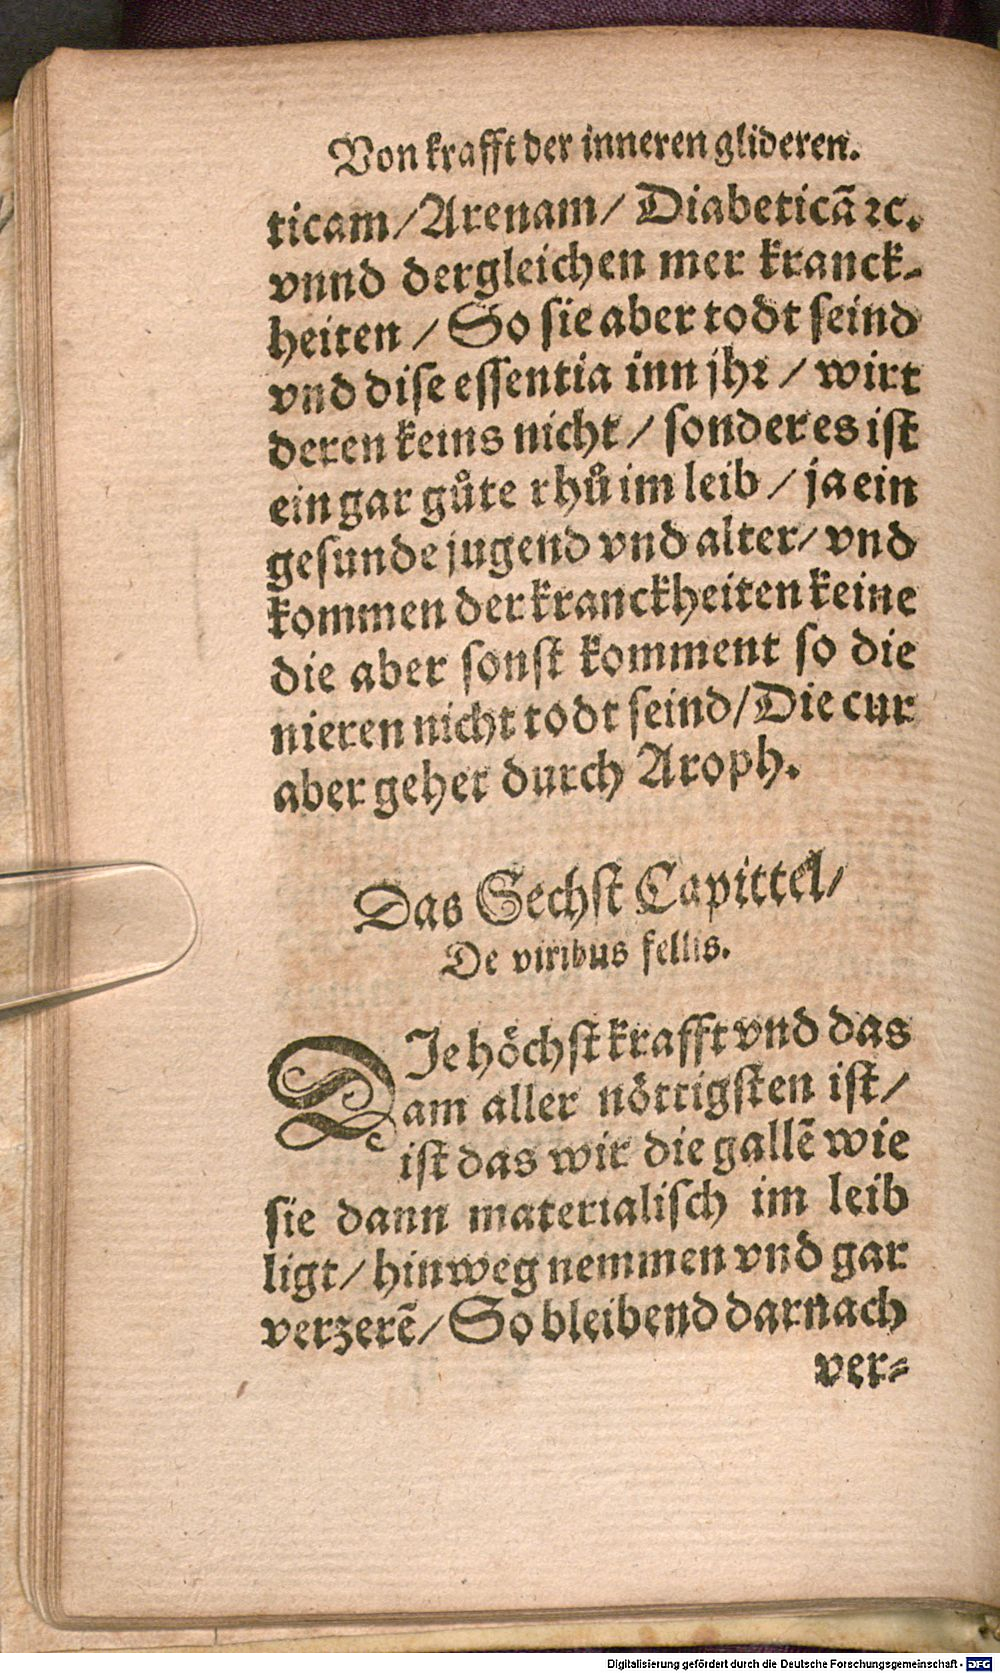 Von krafft der inneren glideren.
ticam/Arenam/ Diabeticã ꝛc.
vnnd dergleichen mer kranck-
heiten / So sie aber todt seind
vnd dise essentia inn jhꝛ / wirt
deren keins nicht / sonder es ist
ein gar gůte rhů im leib / ja ein
gesunde jugend vnd alter/ vnd
kommen der kranckheiten keine
die aber sonst komment so die
nieren nicht todt seind/Die cur
aber gehet durch Aroph.
Das Sechst Capittel/
De viribus fellis.
DJe höchst krafft vnd das
am aller nöttigsten ist/
ist das wir die gallẽ wie
sie dann materialisch im leib
ligt/ hinweg nemmen vnd gar
verzerẽ/ So bleibend darnach
ver-
Digitalisierung gefördert durch die Deutsche Forschungsgemeinschaft - DFG